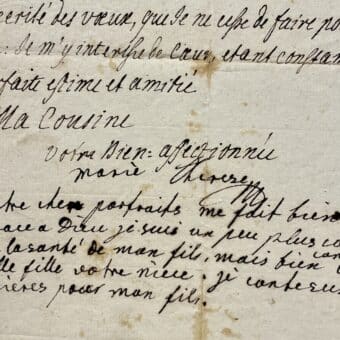 cerité des vœux, que Je ne cesse de faire po
: Je m'y interesse de Cœur, etant constam
rfaite estime et amitié
Ma Cousine
votre Bien: afectionnée
marie therese
tre cher portraits me fait bien
race a Dieu je suis un peu plus co
la santé de mon fils, mais bien con
lle fille votre niece. je conte sur
ières pour mon fils.